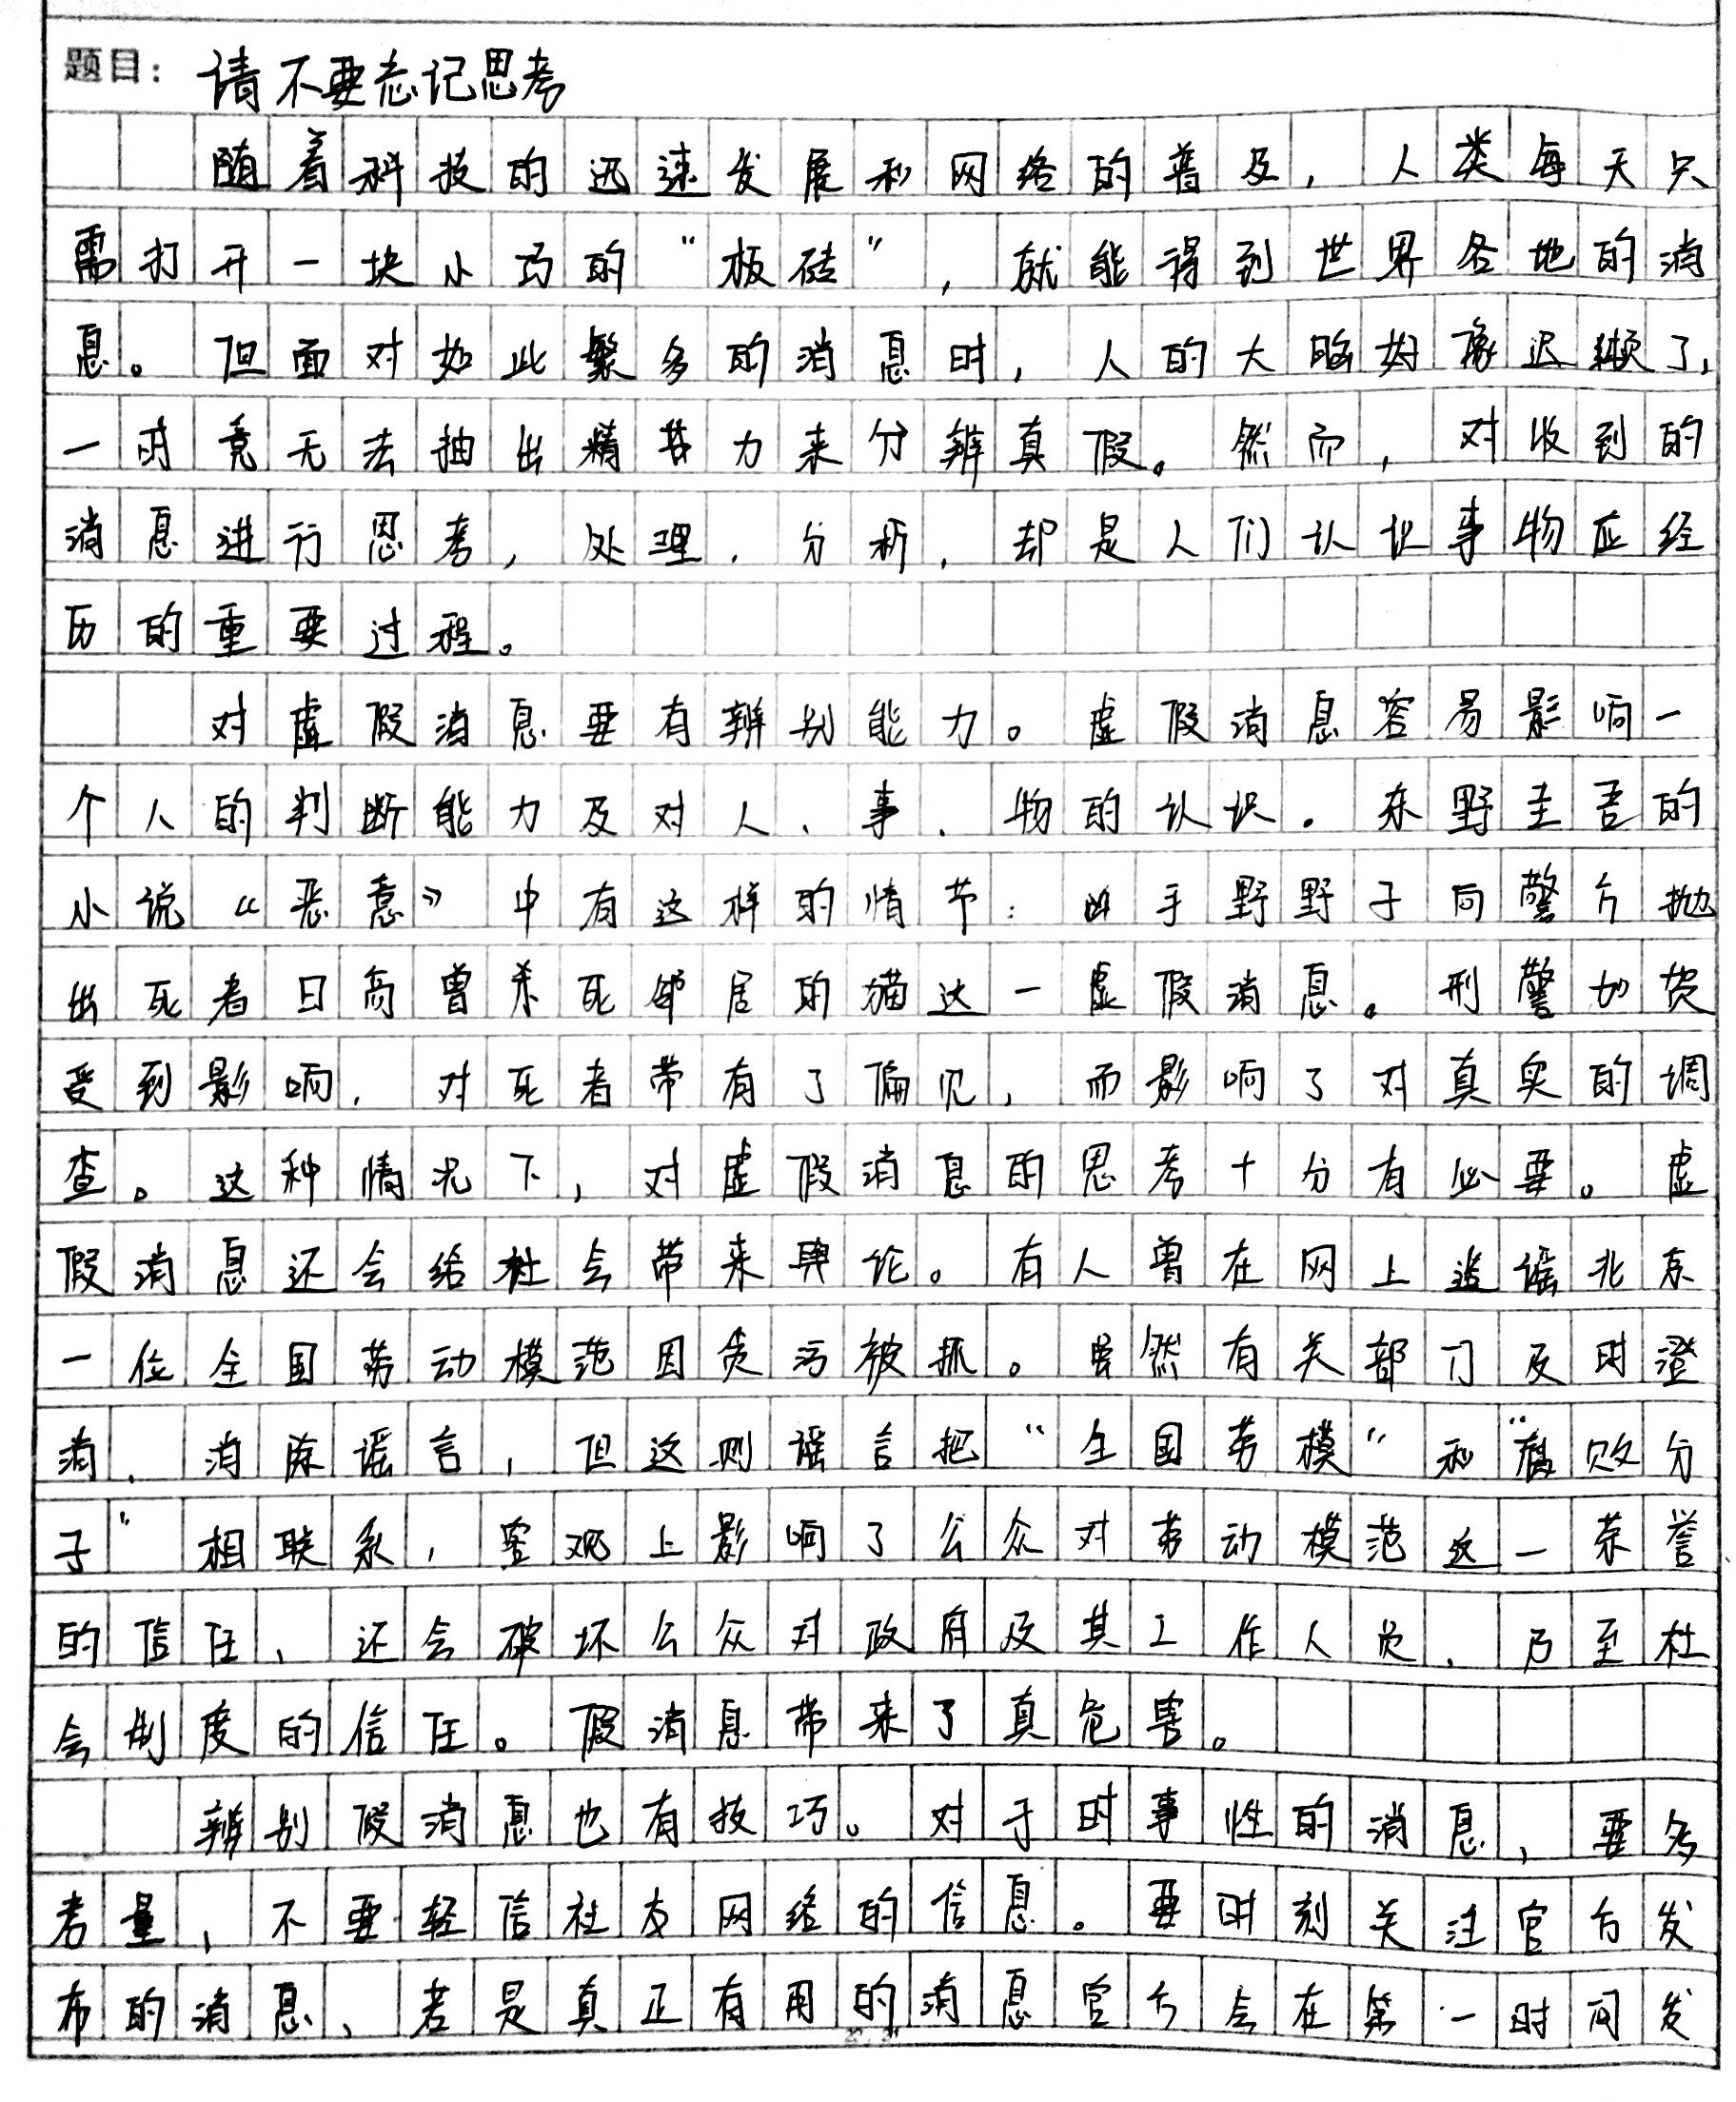 题目：请不要忘记思考
随着科技的迅速发展和网络的普及，人类每天只
需打开一块小巧的“板砖”，就能得到世界各地的消
息。但面对如此繁多的消息时，人的大脑好像迟缓了，
一时竟无法抽出精力来分辨真假。然而，对收到的
消息进行思考，处理、分析，却是人们认识事物应经
历的重要过程。
对虚假消息要有辨别能力。虚假消息容易影响一
个人的判断能力及对人、事、物的认识。东野圭吾的
小说《恶意》中有这样的情节：凶手野野子向警方抛
出死者日高曾杀死邻居的猫这一虚假消息。刑警加贺
受到影响，对死者带有了偏见，而影响了对真实的调
查。这种情况下，对虚假消息的思考十分有必要。虚
假消息还会给社会带来舆论。有人曾在网上造谣北京
一位全国劳动模范因贪污被抓。虽然有关部门及时澄
清，消除谣言，但这则谣言把“全国劳模”和“腐败分
子”相联系，客观上影响了公众对劳动模范这一荣誉
的信任，还会破坏公众对政府及其工作人员，乃至社
会制度的信任。假消息带来了真危害。
辨别假消息也有技巧。对于时事性的消息，要多
考量，不要轻信社交网络的信息。要时刻关注官方发
布的消息，若是真正有用的消息官方会在第一时间发